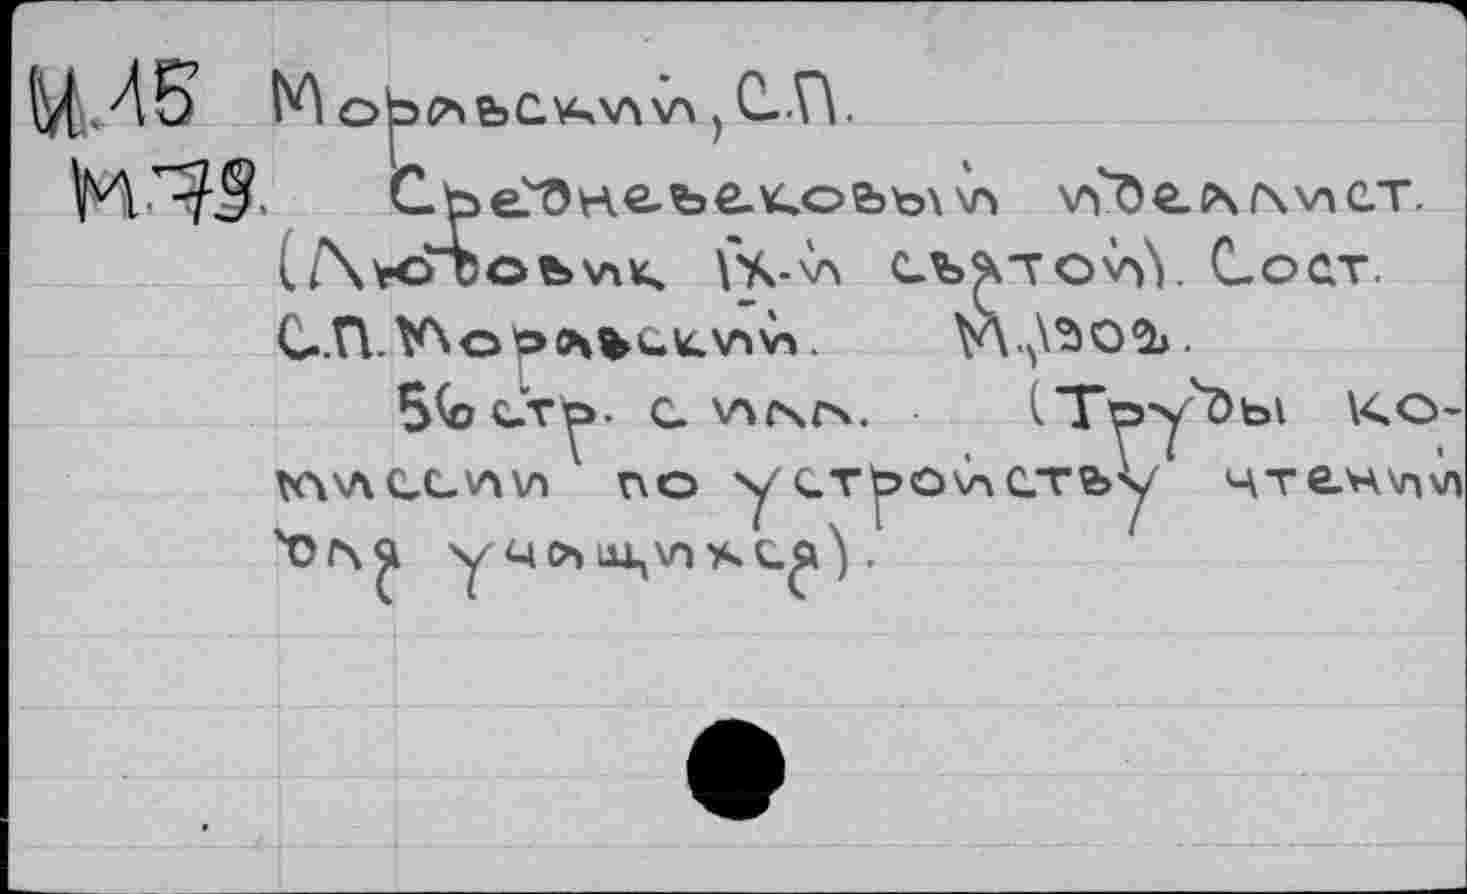 И.15 Моравский, С.П.
М.79. Средневековый идеалист.
(Людовик IX-й святой). Сост.
С.П. Моравский. М., 1902.
56 стр. с илл. (Труды ко-
миссии по устройству чтений
для учащихся).